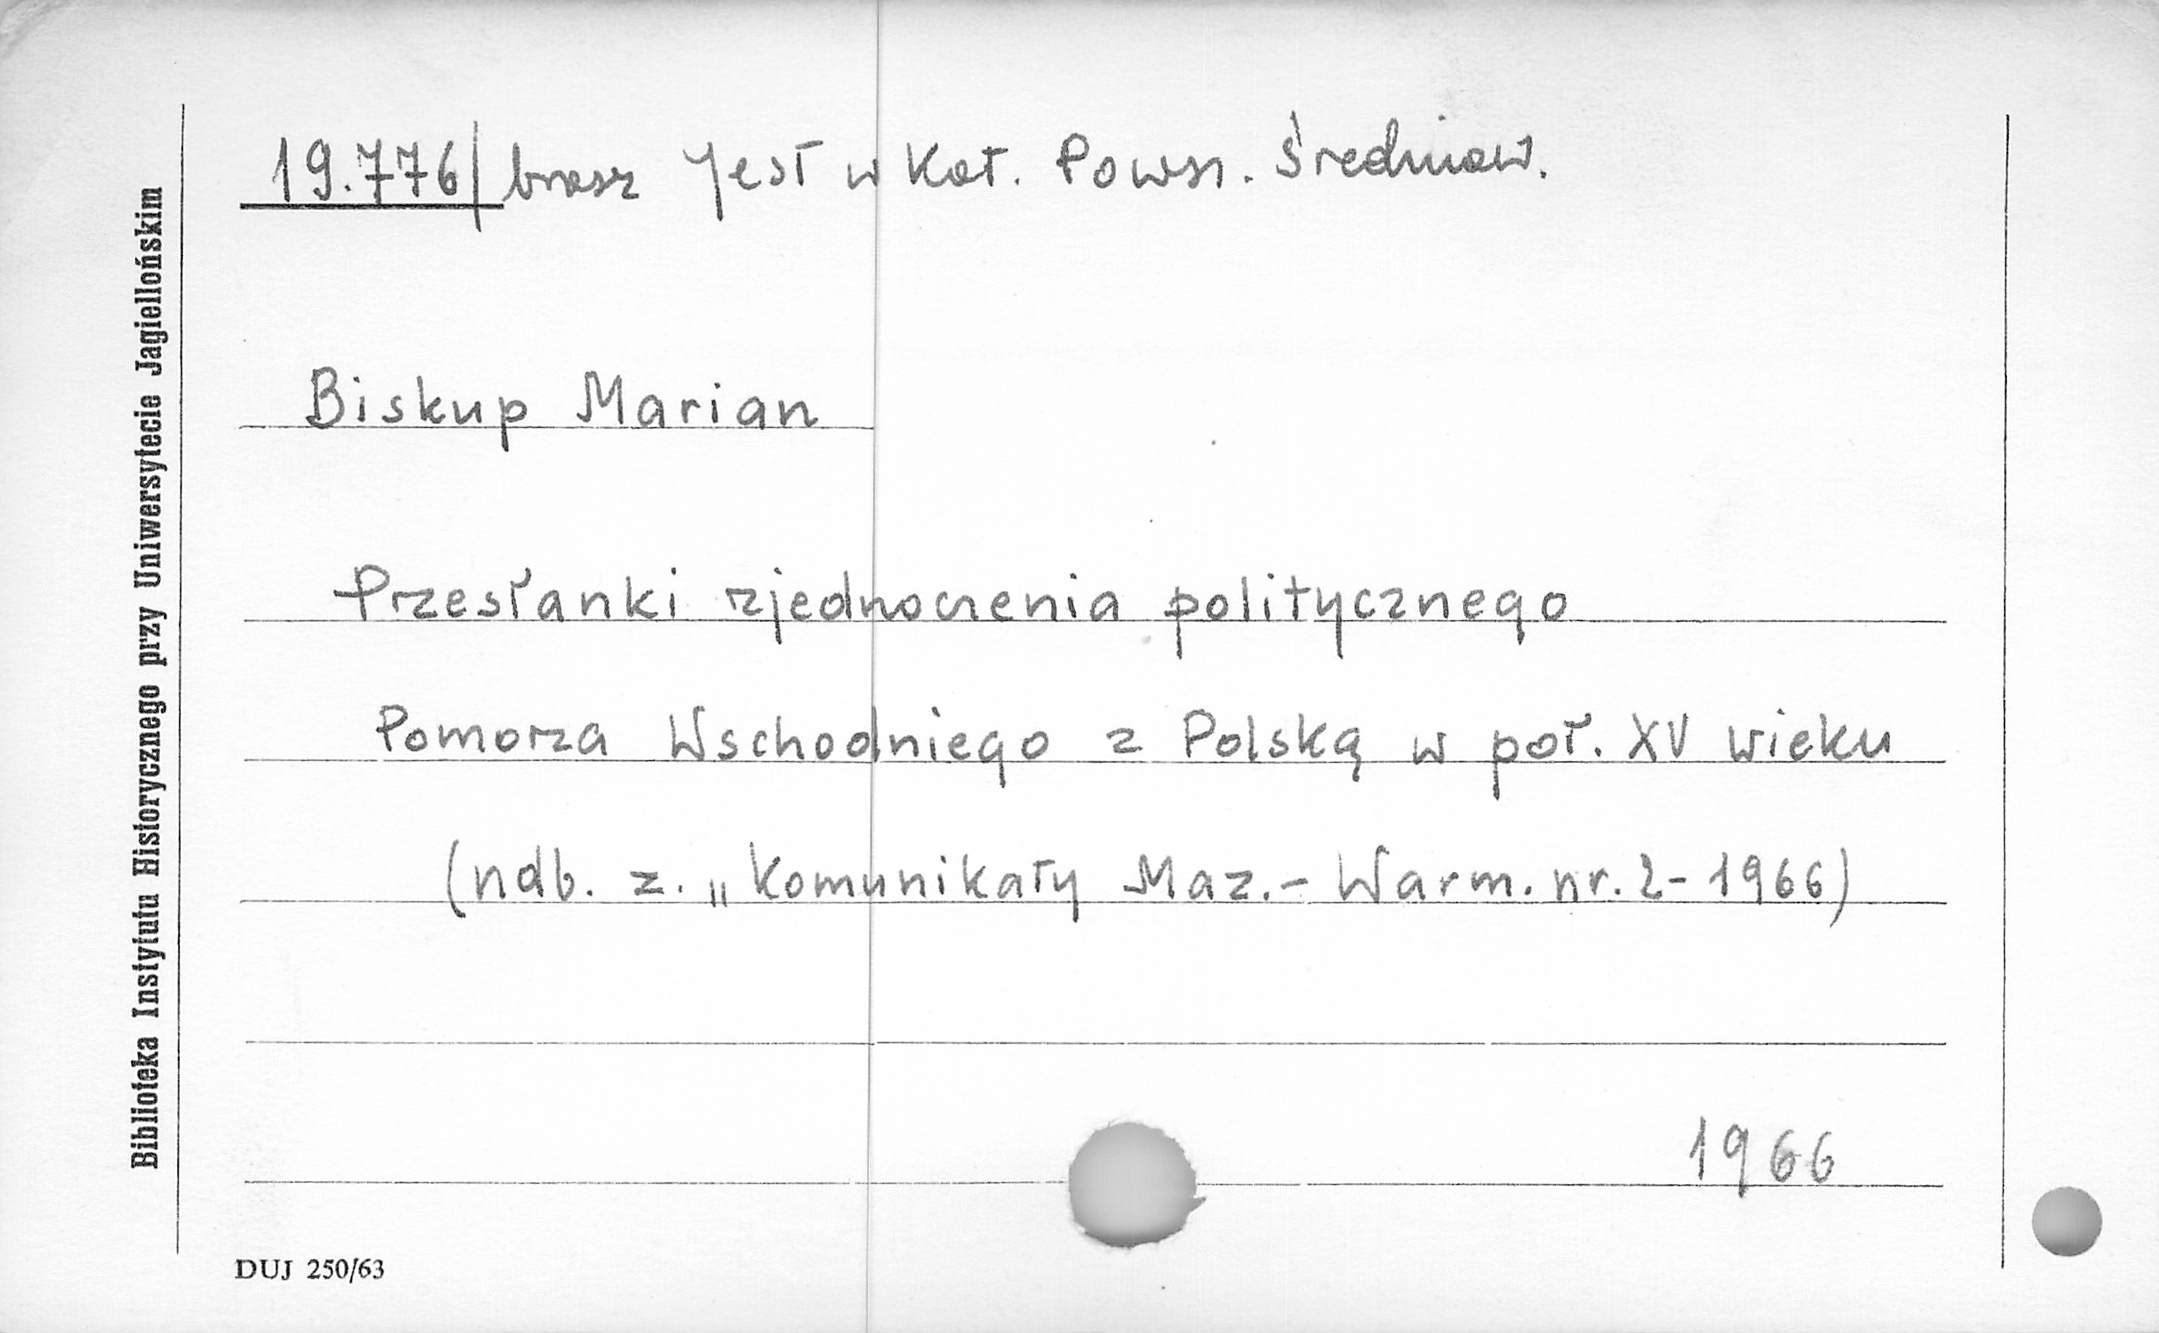 19.776/brosz Jest w Kat. Powsz. Średniow.
Biskup Marian
Przesłanki zjednoczenia politycznego
Pomorza Wschodniego z Polską w poł. XV wieku
(ndb. z. „Komunikaty Maz.- Warm. nr. 2- 1966)
1966
Biblioteka Instytutu Historycznego przy Uniwersytecie Jagiellońskim
DUJ 250/63